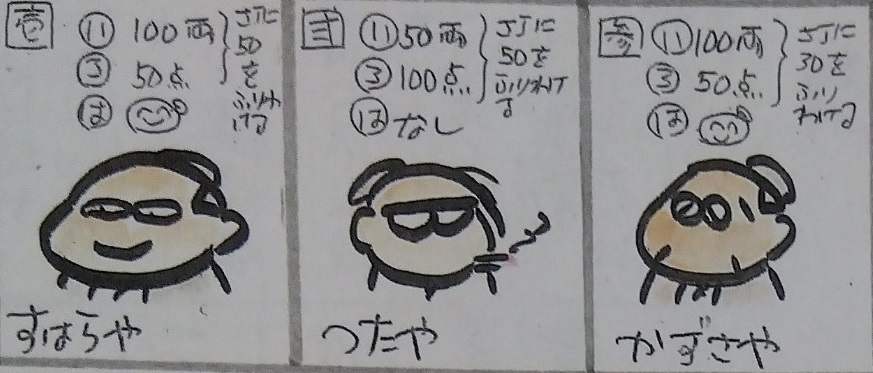 壱
い 100両
ろ 50点
は
さらに
50
を
ふりわ
ける
すはらや
弐
い 50両
ろ 100点
は なし
さらに
50を
ふりわけ
る
つたや
参
い 100両
ろ 50点
は
さらに
30を
ふり
わける
かずさや